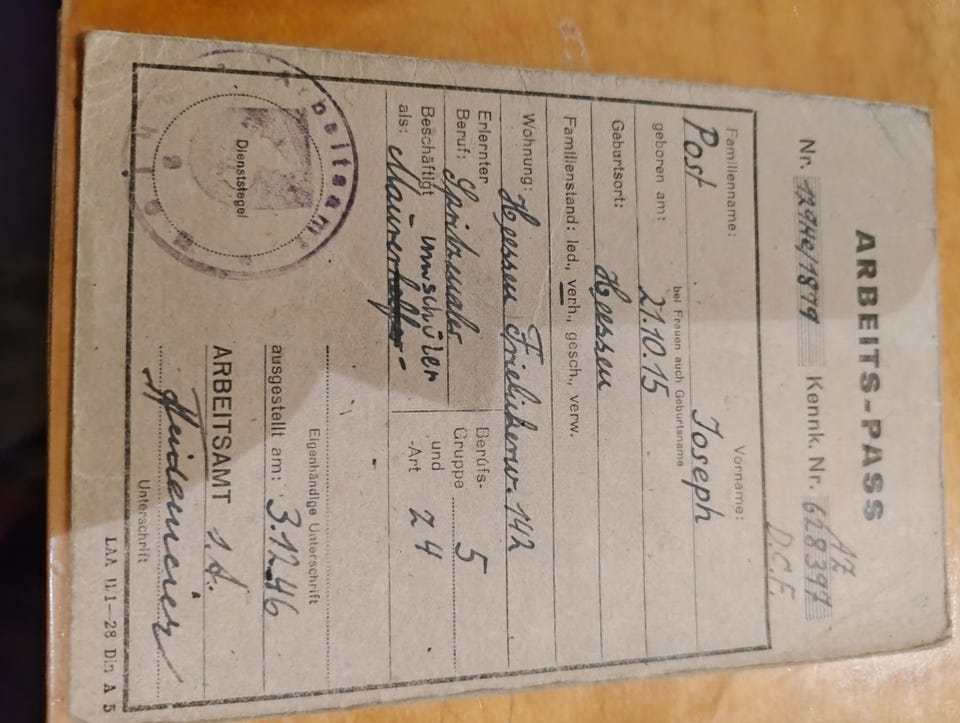 ARBEITS-PASS
Nr. Kennk. Nr. AZ 628397
D.C.F.
Familienname: Vorname:
Post Joseph
bei Frauen auch Geburtsname
geboren am: 21.10.15
Geburtsort: Heessen
Familienstand: led., verh., gesch., verw.
Wohnung: Heessen 142
Erlernter
Beruf: Spritzmaler
Berufs-
Gruppe 5
und
-Art 24
Beschäftigt Umschüler
als: Maurer
Eigenhändige Unterschrift
ausgestellt am: 3.12.46
ARBEITSAMT i.A.
Heidemeier
Unterschrift
Dienstsiegel
LAA II/1-28 Din A 5